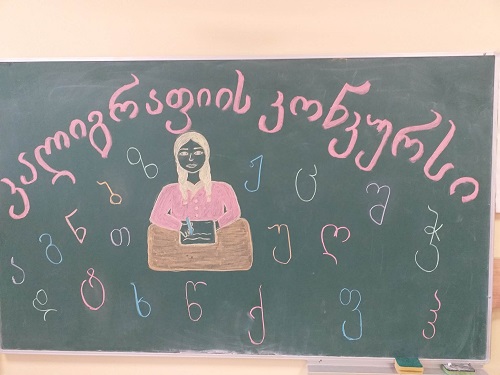 კალიგრაფიის კონკურსი
ზ ჟ ც შ
ნ თ უ ღ ჭ
ა გ
დ ტ ხ წ ქ ფ